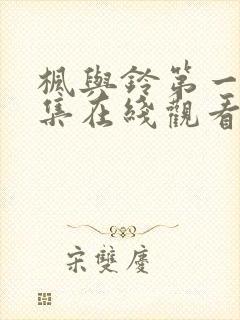 楓與鈴第一
集在綫觀看
宋雙慶